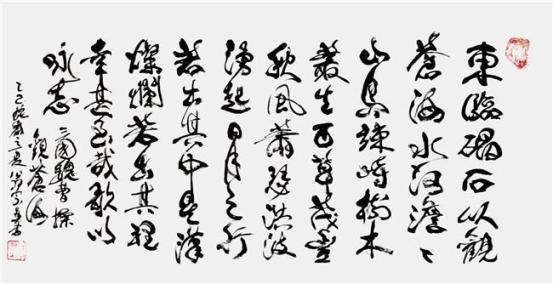 東臨碣石以觀
蒼海水何澹〻
山島竦峙樹木
叢生百草茂豐
秋風蕭瑟洪波
湧起日月之行
若出其中星漢
燦爛若出其裡
幸甚至哉歌以
詠志
三國魏曹操
觀蒼海